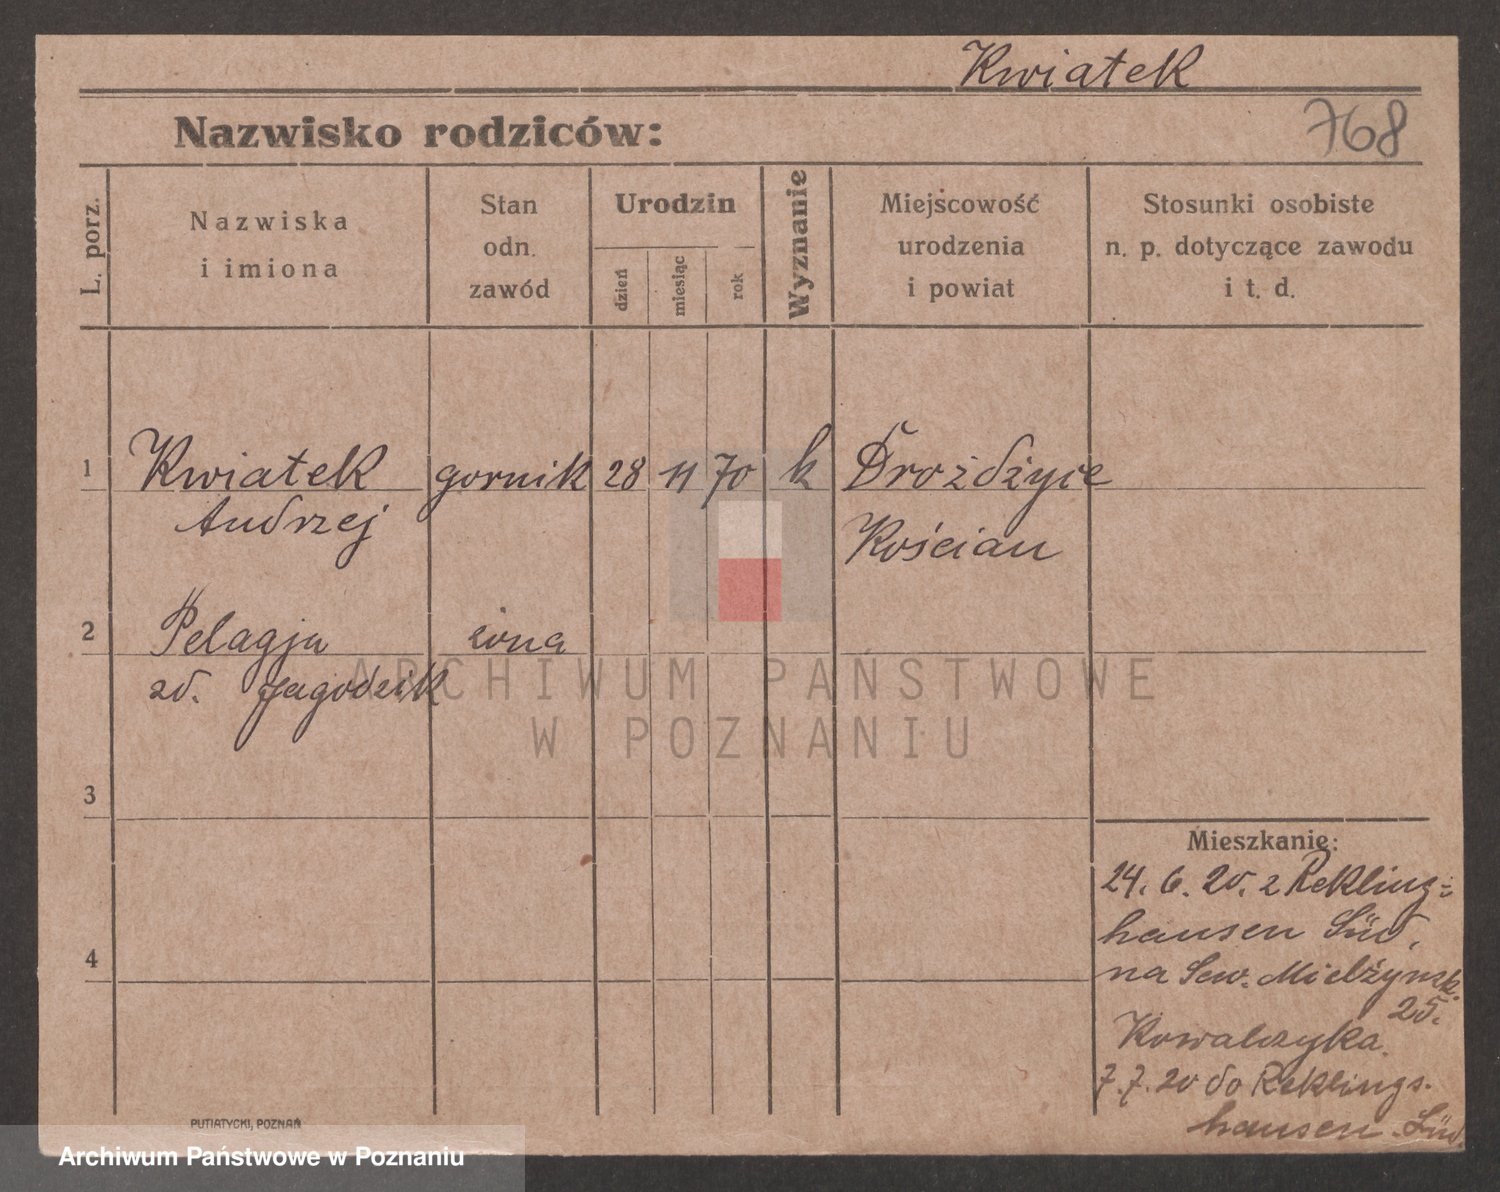 Kwiatek
Nazwisko rodziców:
768
L. porz.
Nazwiska
i imiona
Stan
odn.
zawód
Urodzin
dzień
miesiąc
rok
Wyznanie
Miejscowość
urodzenia
i powiat
Stosunki osobiste
n. p. dotyczące zawodu
i t. d.
1 Kwiatek gornik 28 11 70 k Drożdżyce
Andrzej Kościan
2 Pelagja żona
zd. Jagodzik
ARCHIWUM PAŃSTWOWE
W POZNANIU
3
Mieszkanie:
24. 6. 20. z Rekling=
hausen Süd,
4
na Sew. Mielżyńsk.
25.
Kowalczyka.
7. 7. 20 do Reklings-
hausen-Süd
PUTIATYCKI, POZNAŃ
Archiwum Państwowe w Poznaniu